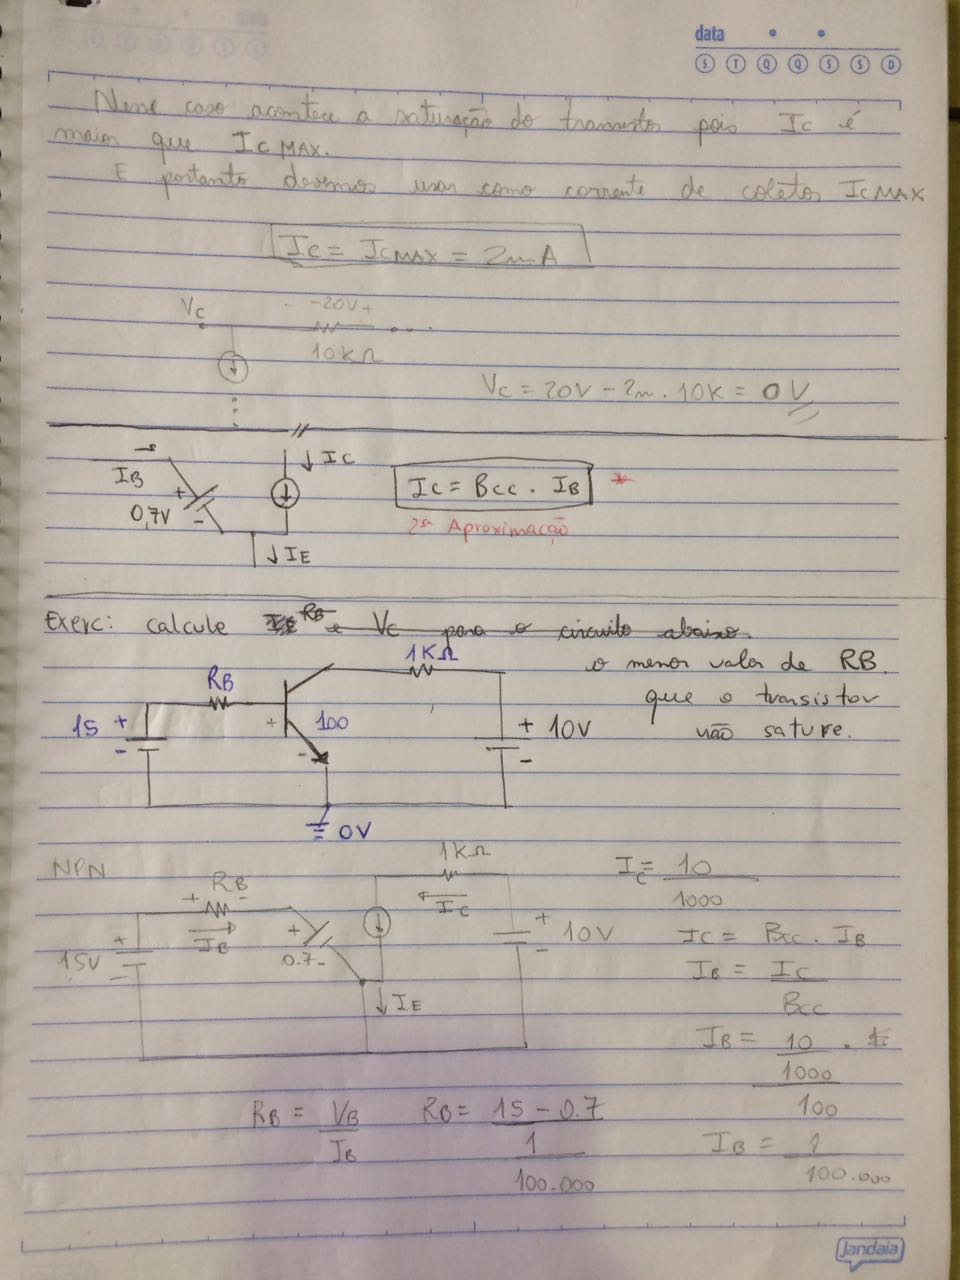 data
S T Q Q S S D
Nesse caso acontece a saturação do transistor pois Ic é
maior que Ic MAX.
E portanto devemos usar como corrente de coletor IcMAX
Ic = IcMAX = 2mA
Vc - -20V+
10KΩ
Vc = 20V - 2m . 10K = 0V
IB
+ 0,7V -
↓ Ic
Ic = Bcc . IB *
2ª Aproximação
↓ IE
Exerc: calcule RB e Vc para o circuito abaixo.
o menor valor de RB
que o transistor
não sature.
RB
1KΩ
15 + -
+ 100 -
+ 10V -
0V
NPN
+ RB -
IB
15V + -
+ 0.7 -
1KΩ
Ic
+ 10V -
↓ IE
Ic = 10
1000
Ic = Bcc . IB
IB = Ic
Bcc
IB = 10 .
1000
100
IB = 1
100.000
RB = VB
IB
RB = 15 - 0.7
1
100.000
Jandaia